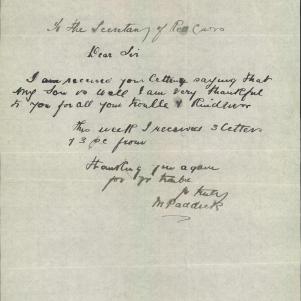 To the Secretary of Red Cross
Dear Sir
I am received your letter saying that
My Son is Well I am very thankful
to you for all your trouble & Kindness
this week I received 3 letters
& 3 pc from
thanking you again
for yr trouble
yr truly
M Paddick